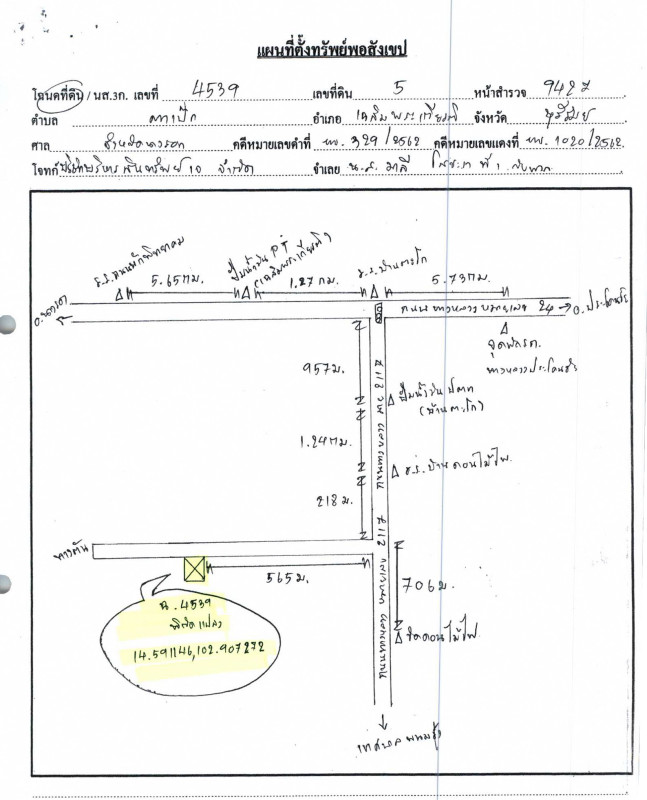 แผนที่ตั้งทรัพย์พอสังเขป
โฉนดที่ดิน / นส.3ก. เลขที่ 4539 เลขที่ดิน 5 หน้าสำรวจ 9427
ตำบล ตาเป๊ก อำเภอ เฉลิมพระเกียรติ จังหวัด บุรีรัมย์
ศาล คดีหมายเลขดำที่ ผบ. 329/2562 คดีหมายเลขแดงที่ ผบ. 1020/2562
โจทก์ บริษัทบริหารสินทรัพย์ จำกัด จำเลย น.ส. มาลี
ร.ร.ถนนหักพิทยาคม
ปั๊มน้ำมัน PT
(เฉลิมพระเกียรติ)
ร.ร. บ้านตะโก
5.65 กม.
1.27 กม.
5.73 กม.
อ.นางรอง
ถนนทางหลวงหมายเลข 24
อ.ประโคนชัย
จุดพักรถ
ทางหลวงประโคนชัย
957 ม.
ปั๊มน้ำมัน ปตท
(บ้านตะโก)
1.24 กม.
ร.ร. บ้านดอนไม้ไฟ
218 ม.
ทางตัน
565 ม.
706 ม.
วัดดอนไม้ไฟ
ฉ. 4539
พิกัดแปลง
14.591146,102.907272
เทศบาล พนมรุ้ง